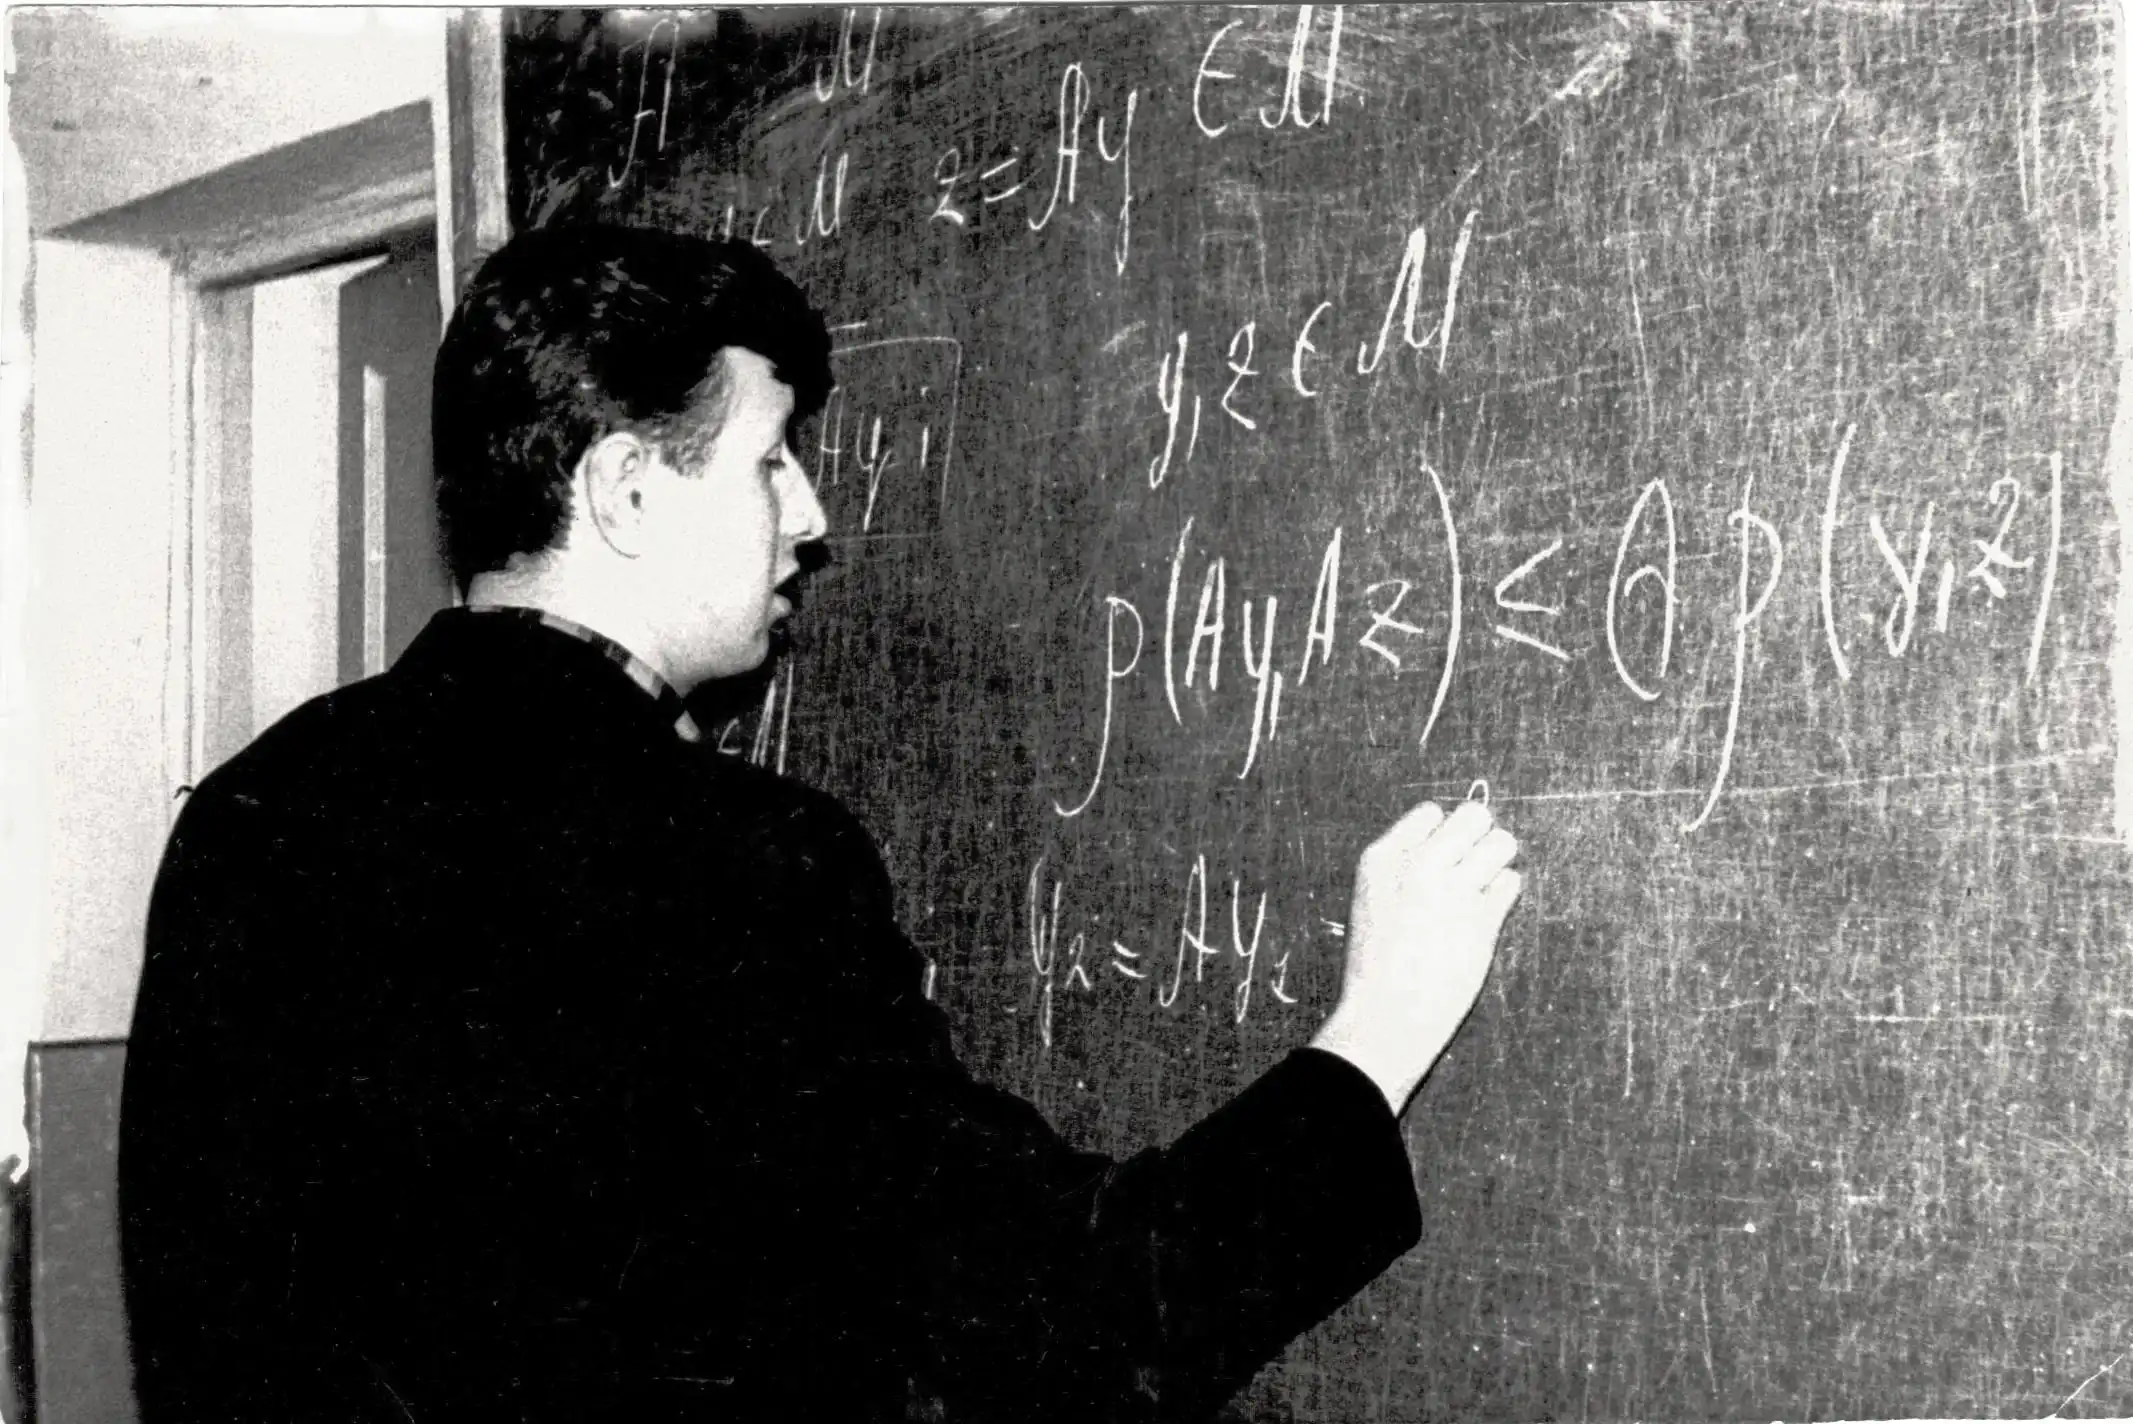 A M
M z = Ay ∈ M
y, z ∈ M
Ay
ρ(Ay, Az) ≤ θρ(y, z)
y₂ = Ay₁